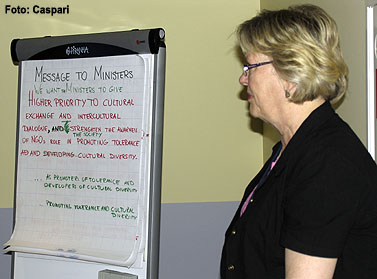 Foto: Caspari
PIRANHA
MESSAGE TO MINISTERS
WE WANT MINISTERS TO GIVE
HIGHER PRIORITY TO CULTURAL
EXCHANGE AND INTERCULTURAL
DIALOGUE, AND STRENGTHEN THE AWARENESS
THE SOCIETY
OF NGOs ROLE IN PROMOTING TOLERANCE
AND DEVELOPING CULTURAL DIVERSITY.
... AS PROMOTERS OF TOLERANCE AND
DEVELOPERS OF CULTURAL DIVERSITY
... PROMOTING TOLERANCE AND CULTURAL
DIVERSITY